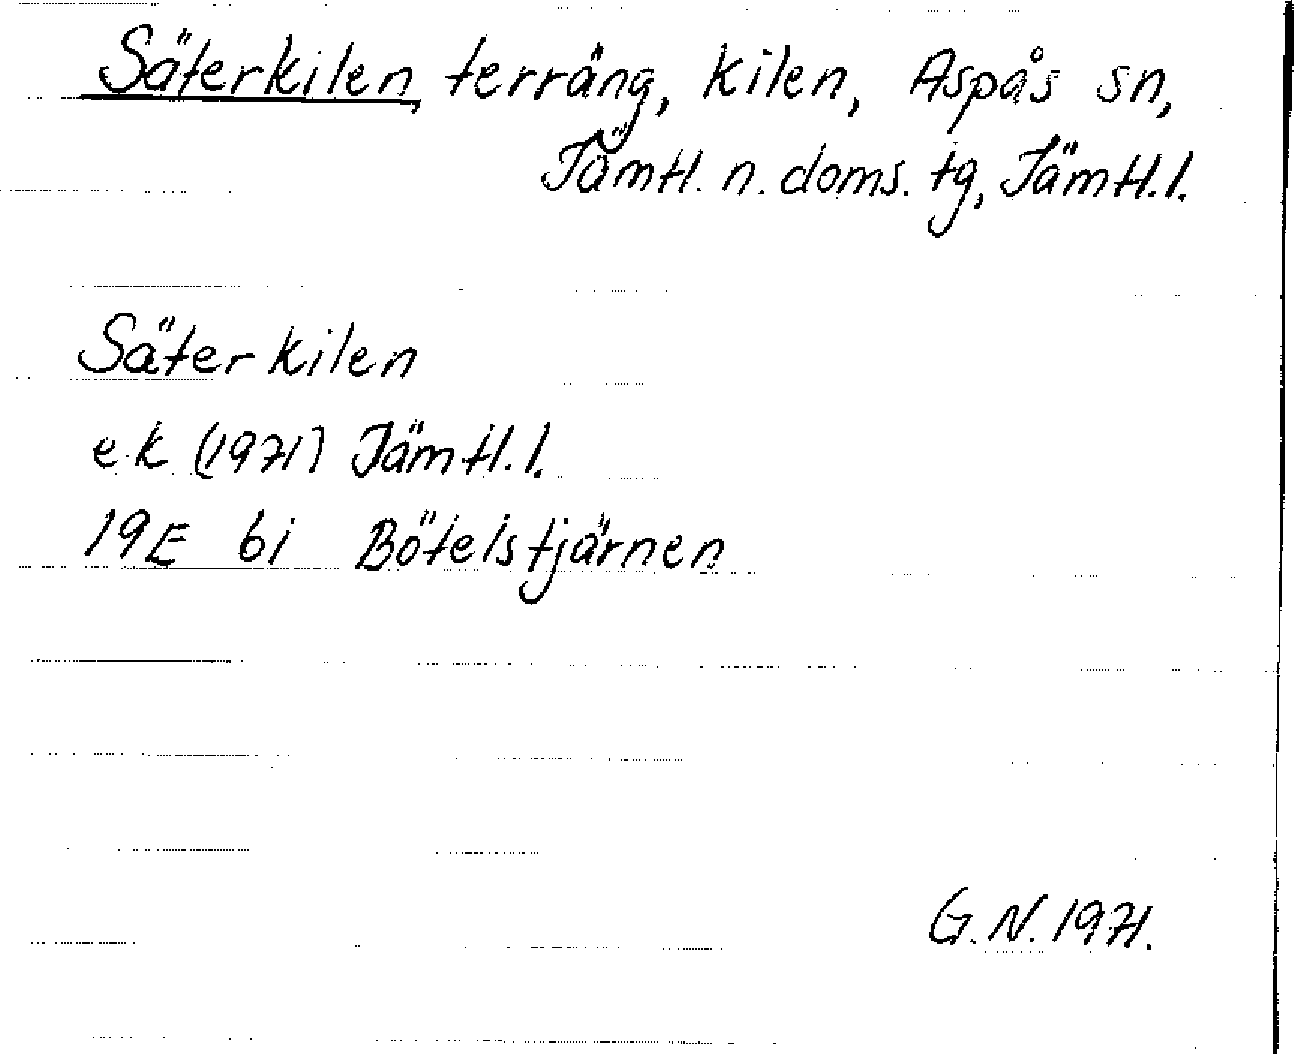 Säterkilen, terräng, Kilen, Aspås sn,
Jämtl. n. doms. tg, Jämtl. l.
Säterkilen
ek (1971) Jämtl. l.
19E 6i Bötelstjärnen
G. N. 1971.